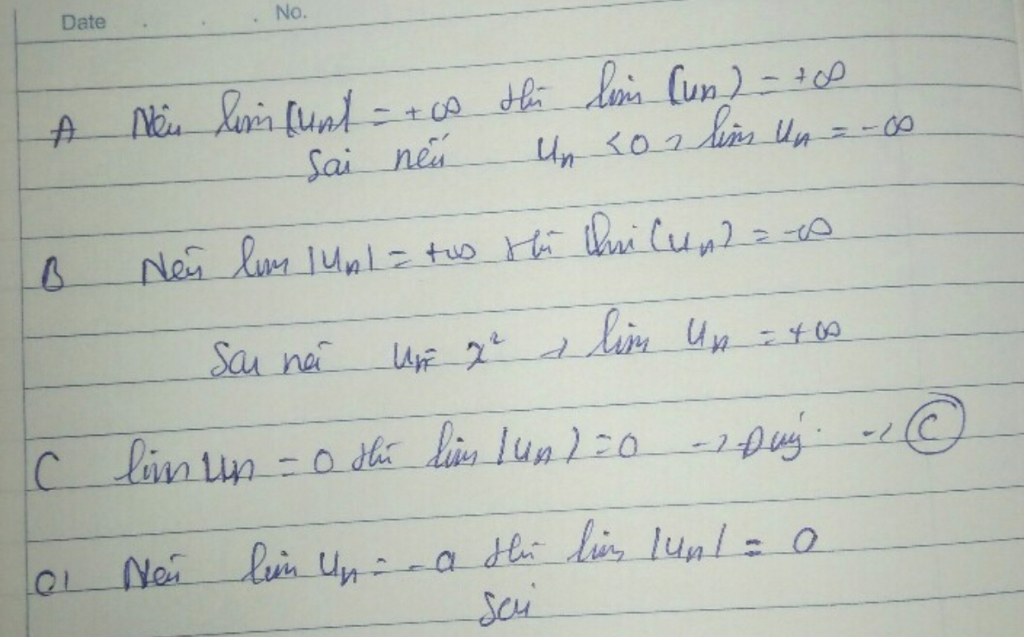 Date . . . No.
A Nếu lim |un| = +∞ thì lim (un) = +∞
Sai nếu un <0 → lim un = -∞
B Nếu lim |un| = +∞ thì lim (un) = -∞
Sai nếu un = x² → lim un = +∞
C lim un = 0 thì lim |un| = 0 → Đúng. → C
D Nếu lim un = -a thì lim |un| = 0
Sai